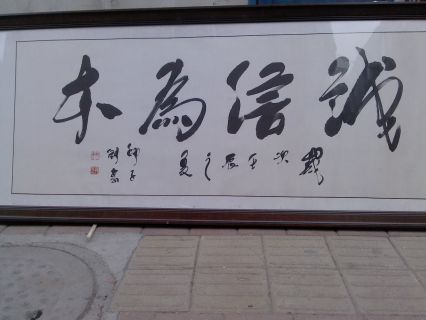 誠信為本
歲次壬辰之夏